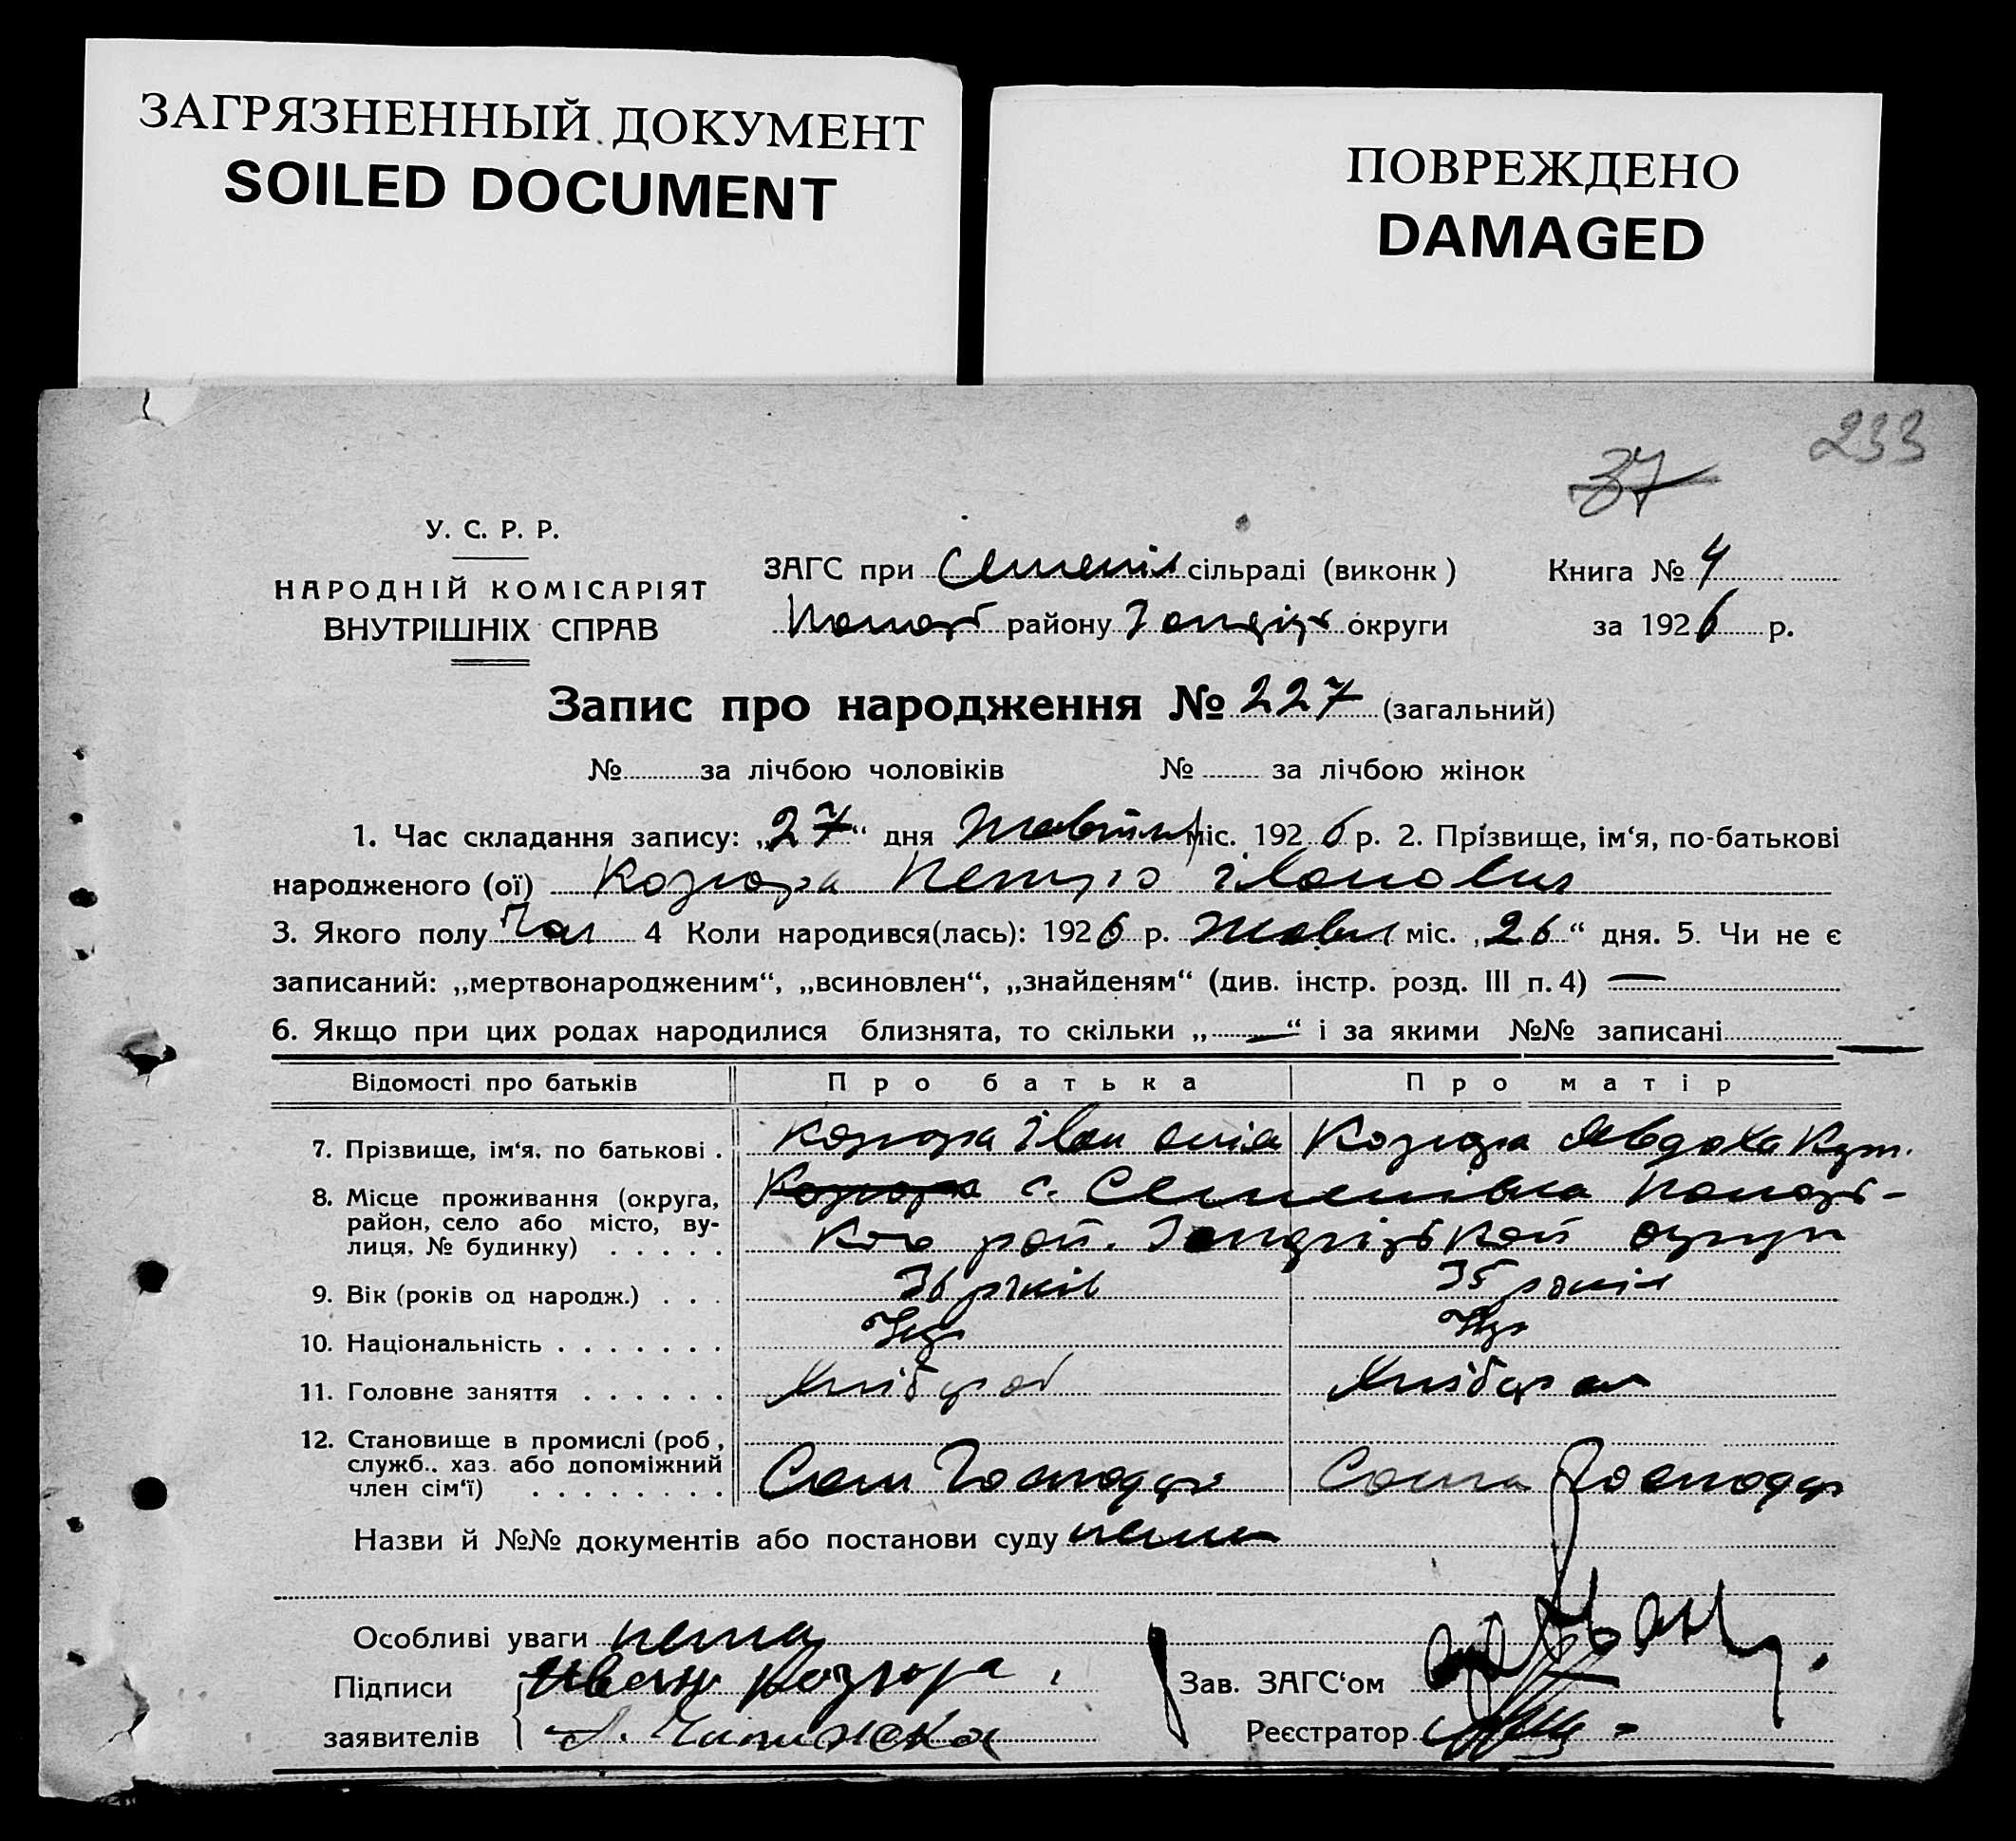 ЗАГРЯЗНЕННЫЙ ДОКУМЕНТ
SOILED DOCUMENT
ПОВРЕЖДЕНО
DAMAGED
233
37
У. С. Р. Р.
НАРОДНІЙ КОМІСАРІЯТ
ВНУТРІШНІХ СПРАВ
ЗАГС при Семенів сільраді (виконк)
району округи
Книга № 4
за 1926 р.
Запис про народження № 227 (загальний)
№ за лічбою чоловіків № за лічбою жінок
1. Час складання запису: „27“ дня міс. 1926 р. 2. Прізвище, ім‘я, по-батькові
народженого (ої) Козюра Петро Іванович
3. Якого полу Чол 4 Коли народився(лась): 1926 р. Жовт міс. „26“ дня. 5. Чи не є
записаний: „мертвонародженим“, „всиновлен“, „знайденям“ (див. інстр. розд. III п. 4) —
6. Якщо при цих родах народилися близнята, то скільки „—“ і за якими №№ записані —
Відомості про батьків Про батька Про матір
7. Прізвище, ім‘я, по батькові . Козюра Іван Козюра Явдоха
8. Місце проживання (округа, район, село або місто, вулиця, № будинку) . . . . . Козюра с. Семенівка
рай. округи
9. Вік (років од народж.) . . . 36 років 35 років
10. Національність . . . . . . . Укр Укр
11. Головне заняття . . . . . . Хлібороб Хлібороб
12. Становище в промислі (роб, служб., хаз. або допоміжний член сім‘ї) . . . . . . . . Сам Господар Сама Господар
Назви й №№ документів або постанови суду нема
Особливі уваги нема
Підписи заявителів Иван Козюра
Зав. ЗАГС‘ом
Реєстратор